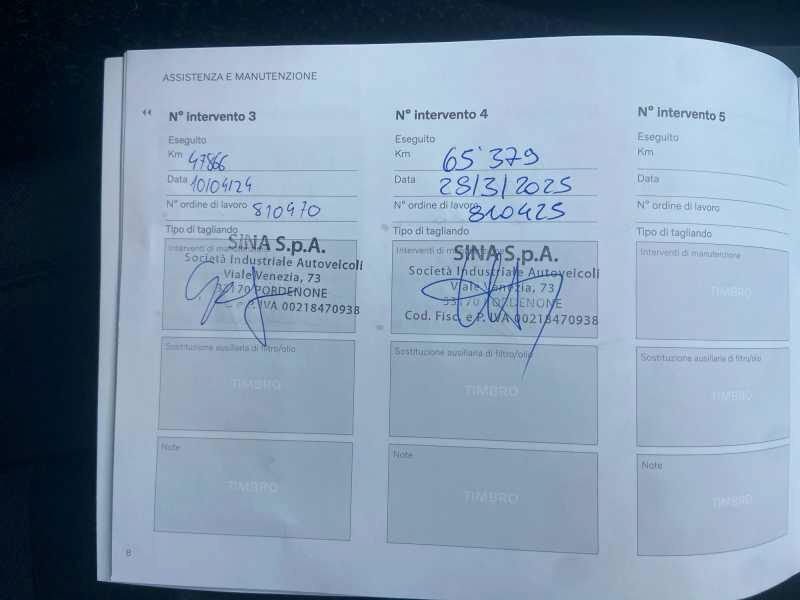 ASSISTENZA E MANUTENZIONE
N° intervento 3
Eseguito
Km 47866
Data 10/04/24
N° ordine di lavoro 810470
Tipo di tagliando
Interventi di manutenzione
SINA S.p.A.
Società Industriale Autoveicoli
Viale Venezia, 73
33170 PORDENONE
P.IVA 00218470938
Sostituzione ausiliaria di filtro/olio
TIMBRO
Note
TIMBRO
N° intervento 4
Eseguito
Km 65'379
Data 28/3/2025
N° ordine di lavoro 810425
Tipo di tagliando
Interventi di
SINA S.p.A.
Società Industriale Autoveicoli
Viale Venezia, 73
33170 PORDENONE
Cod. Fisc. e P. IVA 00218470938
Sostituzione ausiliaria di filtro/olio
TIMBRO
Note
TIMBRO
N° intervento 5
Eseguito
Km
Data
N° ordine di lavoro
Tipo di tagliando
Interventi di manutenzione
TIMBRO
Sostituzione ausiliaria di filtro/olio
TIMBRO
Note
TIMBRO
8